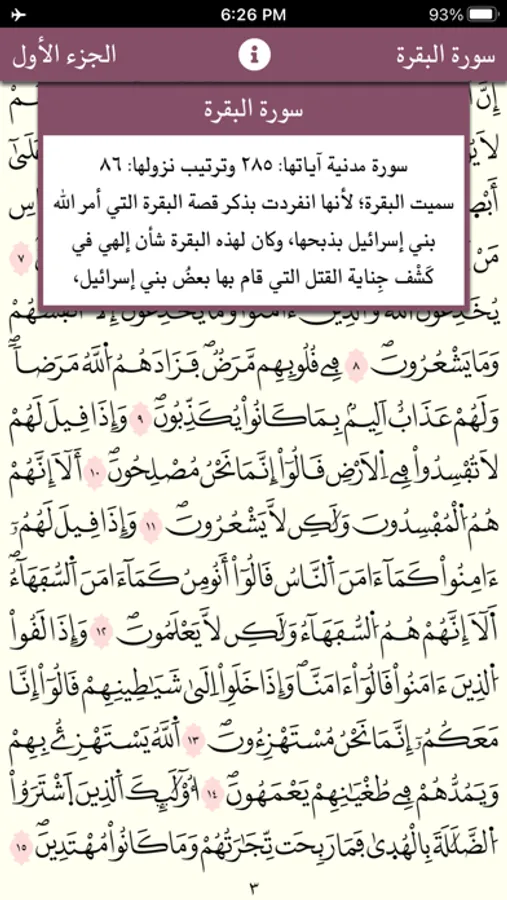 6:26 PM 93%
سورة البقرة الجزء الأول
سورة البقرة
سورة مدنية آياتها: ٢٨٥ وترتيب نزولها: ٨٦
سميت البقرة؛ لأنها انفردت بذكر قصة البقرة التي أمر الله
بني إسرائيل بذبحها، وكان لهذه البقرة شأن إلهي في
كَشْف جِناية القتل التي قام بها بعضُ بني إسرائيل،
إِنَّ
مَنْ ٧
يُخَٰدِعُونَ اَ۬للَّهَ وَالذِينَ ءَامَنُواْ وَمَا يُخَٰدِعُونَ إِلَّآ أَنفُسَهُمْ
وَمَا يَشْعُرُونَۖ ٨ فِے قُلُوبِهِم مَّرَضٞ فَزَادَهُمُ اُ۬للَّهُ مَرَضاٗۖ
وَلَهُمْ عَذَابٌ أَلِيمُۢ بِمَا كَانُواْ يُكَذِّبُونَۖ ٩ وَإِذَا قِيلَ لَهُمْ
لَا تُفْسِدُواْ فِے اِ۬لَارْضِ قَالُوٓاْ إِنَّمَا نَحْنُ مُصْلِحُونَۖ ١٠ أَلَآ إِنَّهُمْ
هُمُ اُ۬لْمُفْسِدُونَ وَلَٰكِن لَّا يَشْعُرُونَۖ ١١ وَإِذَا قِيلَ لَهُمُۥٓ
ءَامِنُواْ كَمَآ ءَامَنَ اَ۬لنَّاسُ قَالُوٓاْ أَنُومِنُ كَمَآ ءَامَنَ اَ۬لسُّفَهَآءُۖ
أَلَآ إِنَّهُمْ هُمُ اُ۬لسُّفَهَآءُ وَلَٰكِن لَّا يَعْلَمُونَۖ ١٢ وَإِذَا لَقُواْ
اُ۬لذِينَ ءَامَنُواْ قَالُوٓاْ ءَامَنَّاۖ وَإِذَا خَلَوِاْ اِلَىٰ شَيَٰطِينِهِمْ قَالُوٓاْ إِنَّا
مَعَكُمُۥٓ إِنَّمَا نَحْنُ مُسْتَهْزِءُونَۖ ١٣ اَ۬للَّهُ يَسْتَهْزِۓُ بِهِمْ
وَيَمُدُّهُمْ فِے طُغْيَٰنِهِمْ يَعْمَهُونَۖ ١٤ أُوْلَٰٓئِكَ اَ۬لذِينَ اَ۪شْتَرَوُاْ
اُ۬لضَّلَٰلَةَ بِالْهُدَىٰ فَمَا رَبِحَت تِّجَٰرَتُهُمْ وَمَا كَانُواْ مُهْتَدِينَۖ ١٥
٣